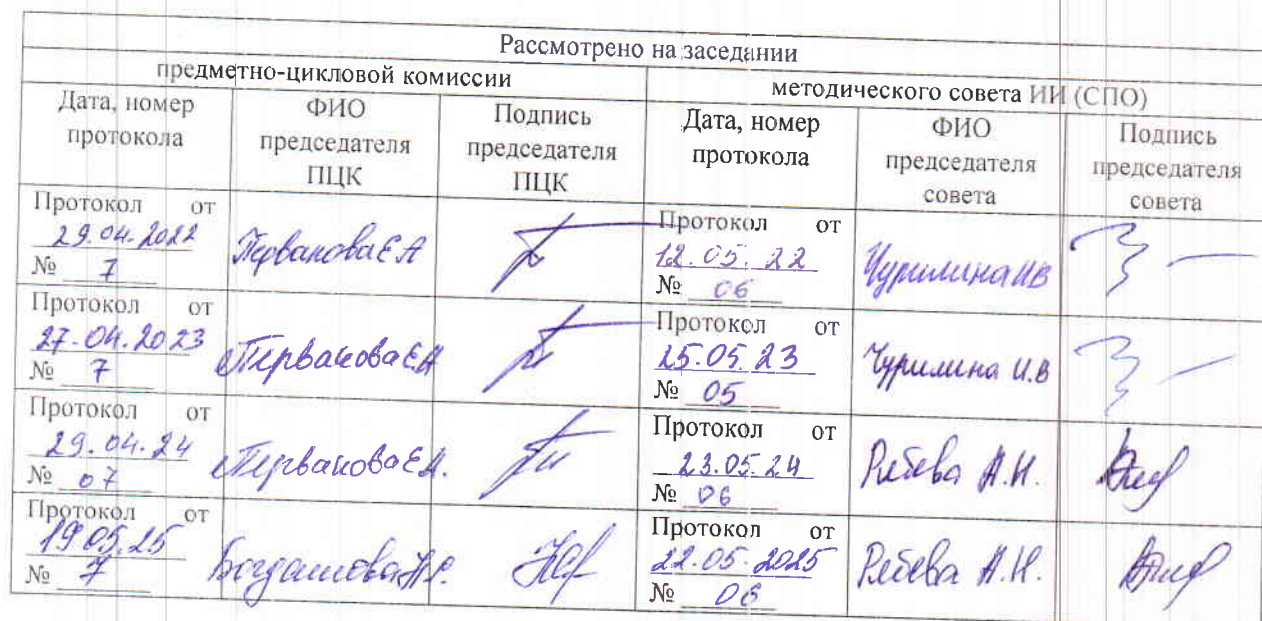 Рассмотрено на заседании
предметно-цикловой комиссии
методического совета ИИ (СПО)
Дата, номер протокола
ФИО председателя ПЦК
Подпись председателя ПЦК
Дата, номер протокола
ФИО председателя совета
Подпись председателя совета
Протокол от
29.04.2022
№ 7
Перванова Е А
Протокол от
12.05.22
№ 06
Чурилина ИВ
Протокол от
27.04.2023
№ 7
Перванова Е А
Протокол от
25.05.23
№ 05
Чурилина И.В
Протокол от
29.04.24
№ 07
Перванова Е А.
Протокол от
23.05.24
№ 06
А.Н.
Протокол от
19 05.25
№ 7
Протокол от
22.05.2025
№ 06
А.Н.